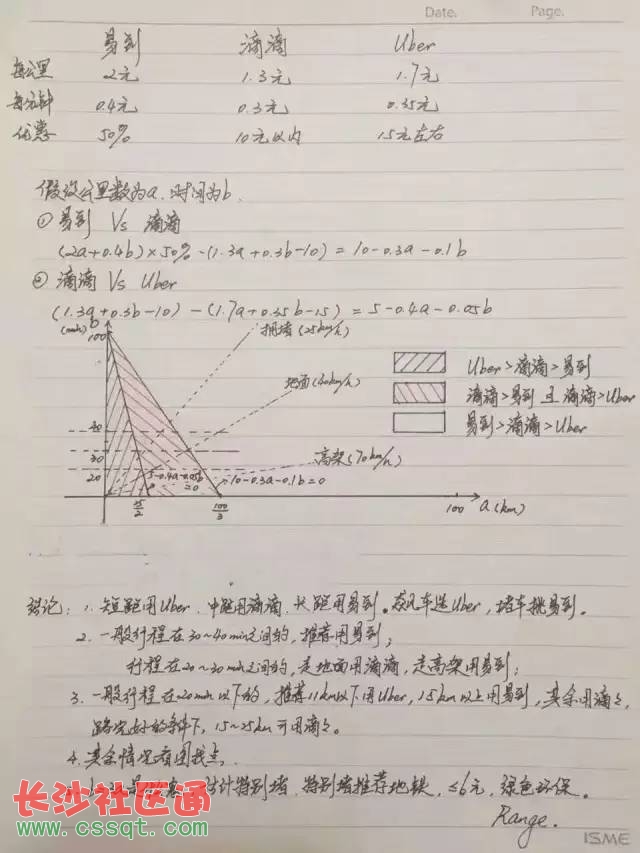 Date. Page.
易到 滴滴 Uber
每公里 2元 1.3元 1.7元
每分钟 0.4元 0.3元 0.35元
优惠 50% 10元以内 15元左右
假设公里数为a.时间为b.
① 易到 Vs 滴滴
(2a+0.4b)×50%-(1.3a+0.3b-10)=10-0.3a-0.1b
② 滴滴 Vs Uber
(1.3a+0.3b-10)-(1.7a+0.35b-15)=5-0.4a-0.05b
b
100
拥堵(25km/h)
地面(40km/h)
高架(70km/h)
30
20
5-0.4a-0.05b=0
10-0.3a-0.1b=0
25/2
100/3
100 a(km)
Uber>滴滴>易到
滴滴>易到 且 滴滴>Uber
易到>滴滴>Uber
结论: 1. 短距用Uber. 中距用滴滴. 长距用易到。 Uber, 堵车挑易到。
2. 一般行程在30~40min之间的, 推荐用易到;
行程在20~30min之间的, 走地面用滴滴, 走高架用易到;
3. 一般行程在20min以下的, 推荐11km以下用Uber, 15km以上用易到, 其余用滴滴,
路况好的条件下, 15~25km可用滴滴。
4. 其余情况看图找点.
特别堵. 特别堵推荐地铁, ≤6元, 绿色环保。
Range.
长沙社区通
www.cssqt.com
ISME